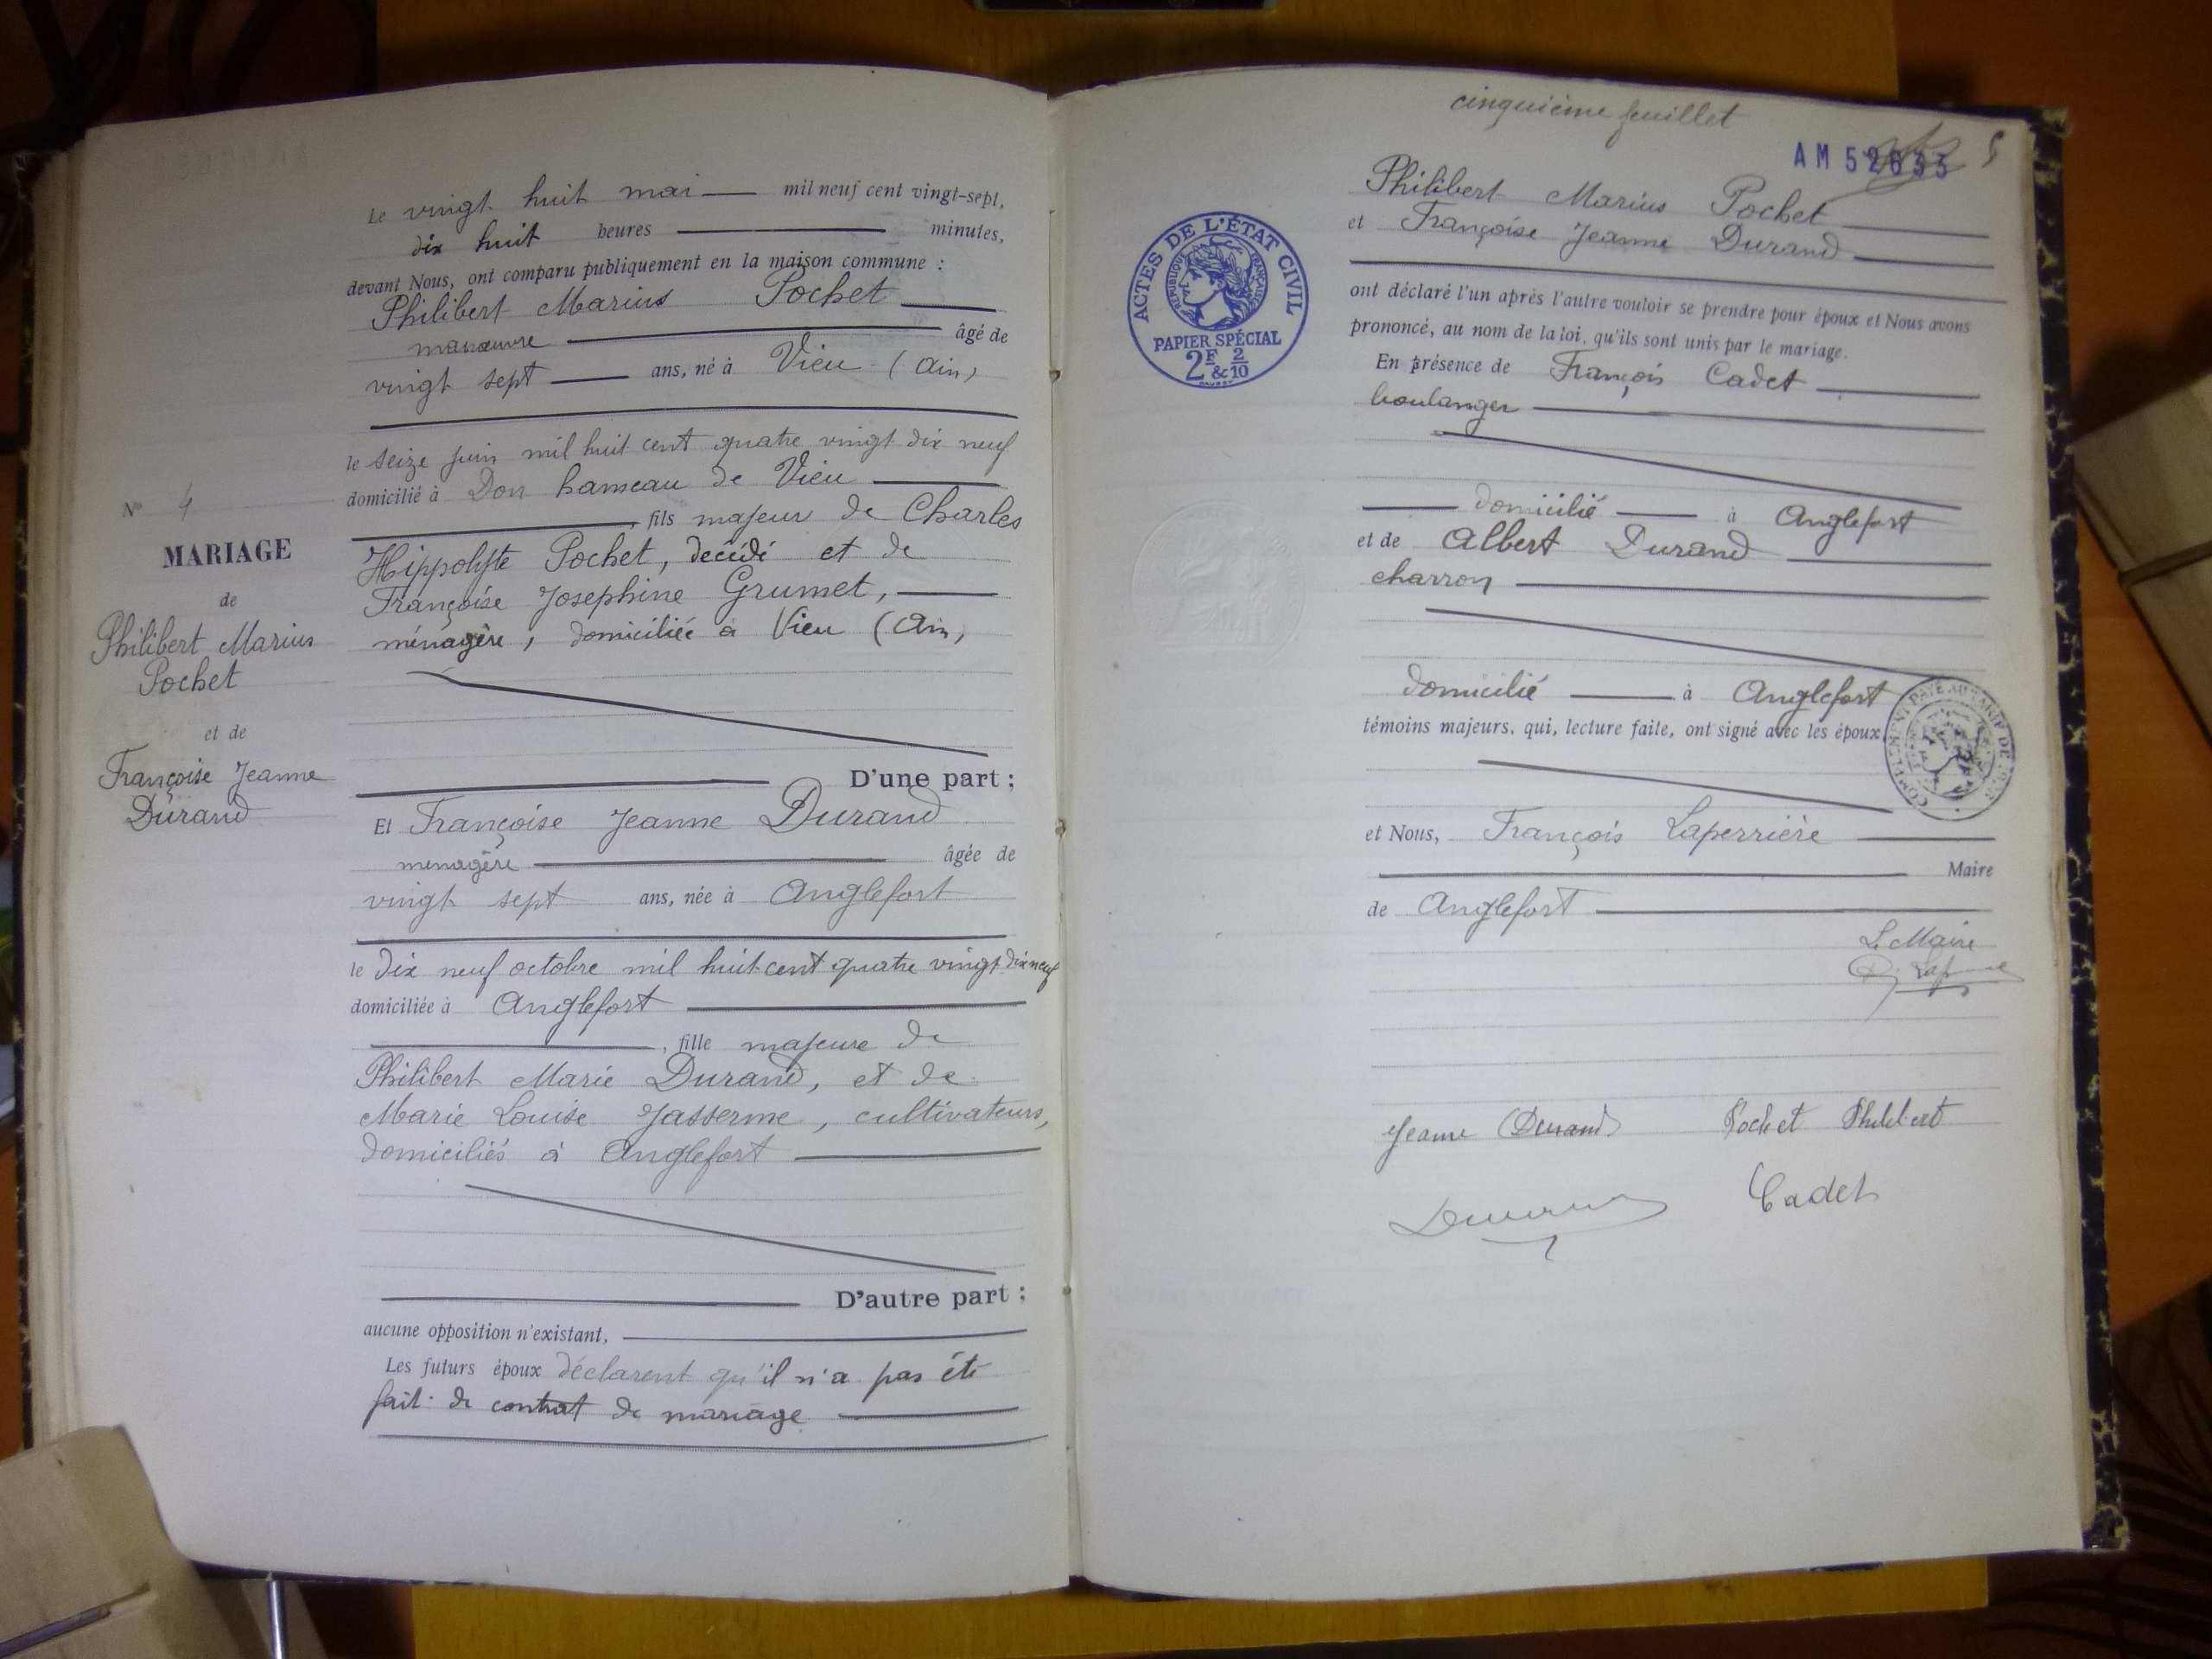 Le vingt huit mai mil neuf cent vingt-sept,
dix huit heures minutes,
devant Nous, ont comparu publiquement en la maison commune :
Philibert Marius Pochet
manœuvre âgé de
vingt sept ans, né à Vieu (Ain)
le seize juin mil huit cent quatre vingt dix neuf
domicilié à Don hameau de Vieu
, fils majeur de Charles
Hippolyte Pochet, décédé et de
Françoise Josephine Grumet,
ménagère, domiciliée à Vieu (Ain,
D'une part ;
Et Françoise Jeanne Durand
menagère âgée de
vingt sept ans, née à Anglefort
le dix neuf octobre mil huit cent quatre vingt dix neuf
domiciliée à Anglefort
, fille majeure de
Philibert Marie Durand, et de
Marie Louise Jasserme, cultivateurs,
domiciliés à Anglefort
D'autre part ;
aucune opposition n'existant,
Les futurs époux déclarent qu'il n'a pas été
fait de contrat de mariage
N° 4
MARIAGE
de
Philibert Marius
Pochet
et de
Françoise Jeanne
Durand
cinquième feuillet
AM 52633 5
ACTES DE L'ÉTAT CIVIL
RÉPUBLIQUE FRANÇAISE
PAPIER SPÉCIAL
2F & 2/10
Philibert Marius Pochet
et Françoise Jeanne Durand
ont déclaré l'un après l'autre vouloir se prendre pour époux et Nous avons
prononcé, au nom de la loi, qu'ils sont unis par le mariage.
En présence de François Cadet
boulanger
domicilié à Anglefort
et de Albert Durand
charron
domicilié à Anglefort
témoins majeurs, qui, lecture faite, ont signé avec les époux
et Nous, François Laperrière
Maire
de Anglefort
Le Maire
Jeanne Durand Pochet Philibert
Durand Cadet